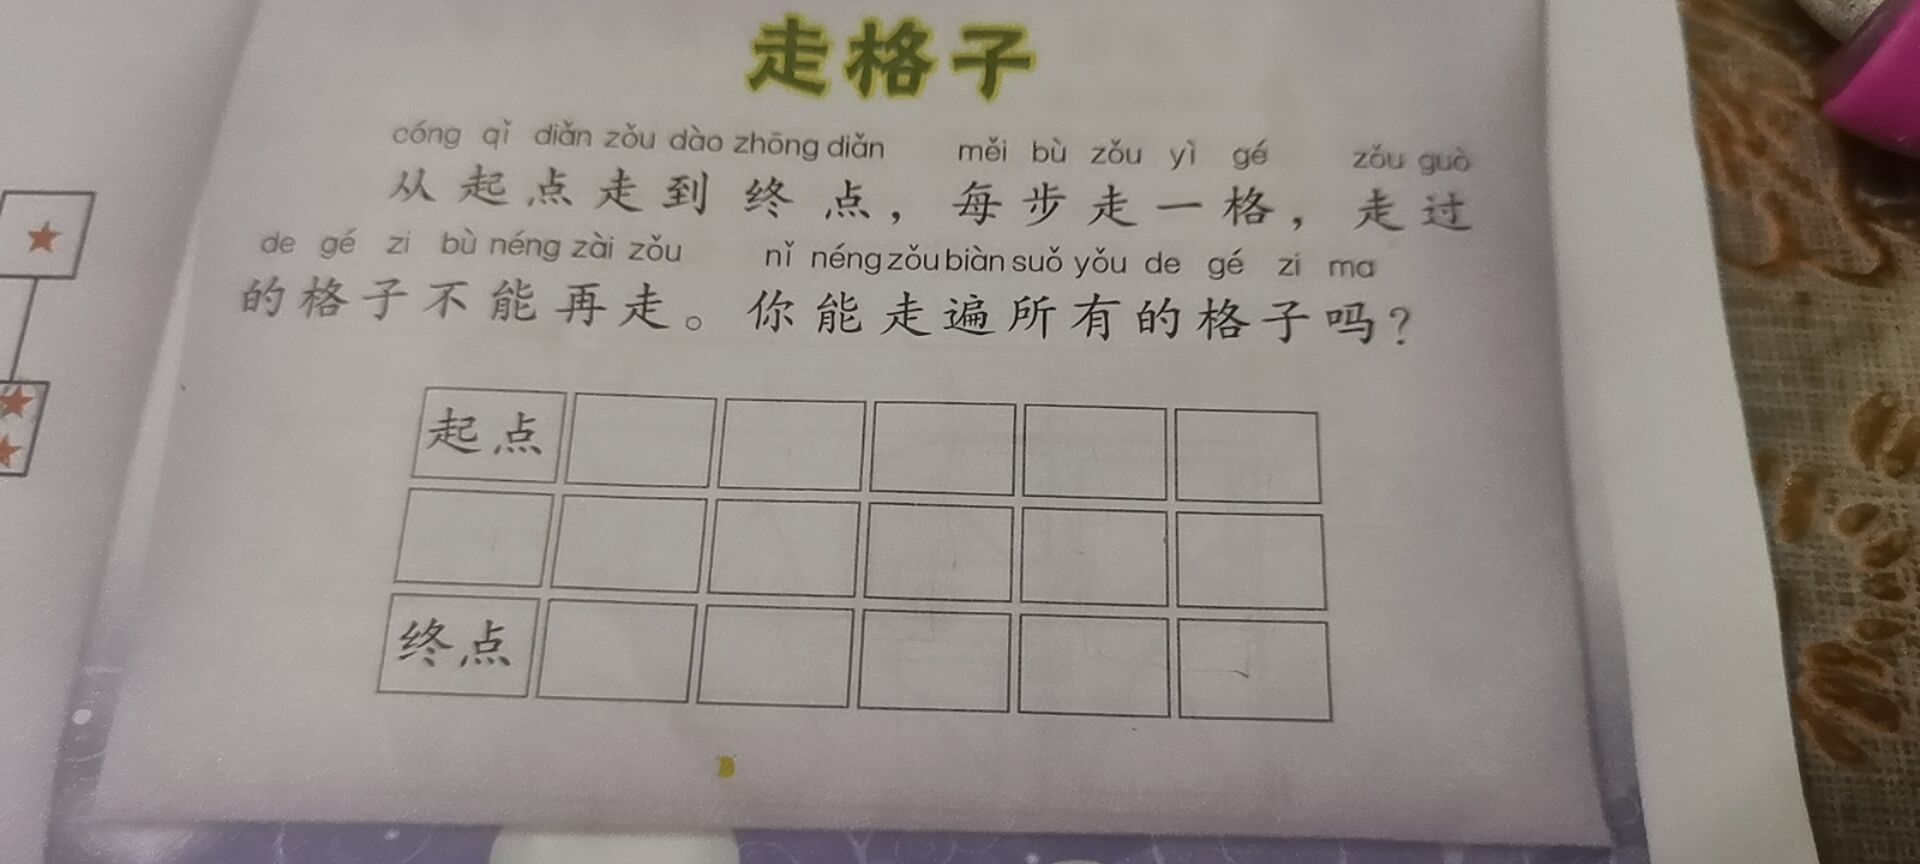 走格子
cóng qǐ diǎn zǒu dào zhōng diǎn měi bù zǒu yì gé zǒu guò
从起点走到终点，每步走一格，走过
de gé zi bù néng zài zǒu nǐ néng zǒu biàn suǒ yǒu de gé zi ma
的格子不能再走。你能走遍所有的格子吗？
起点
终点